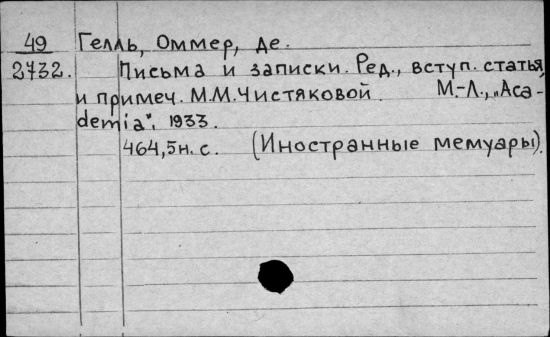 49 Гелль, Оммер, де.
2732. Письма и записки. Ред., вступ. статья,
и примеч. М.М.Чистяковой. М.-Л., „Aca-
demia", 1933.
464,5н.с. (Иностранные мемуары).